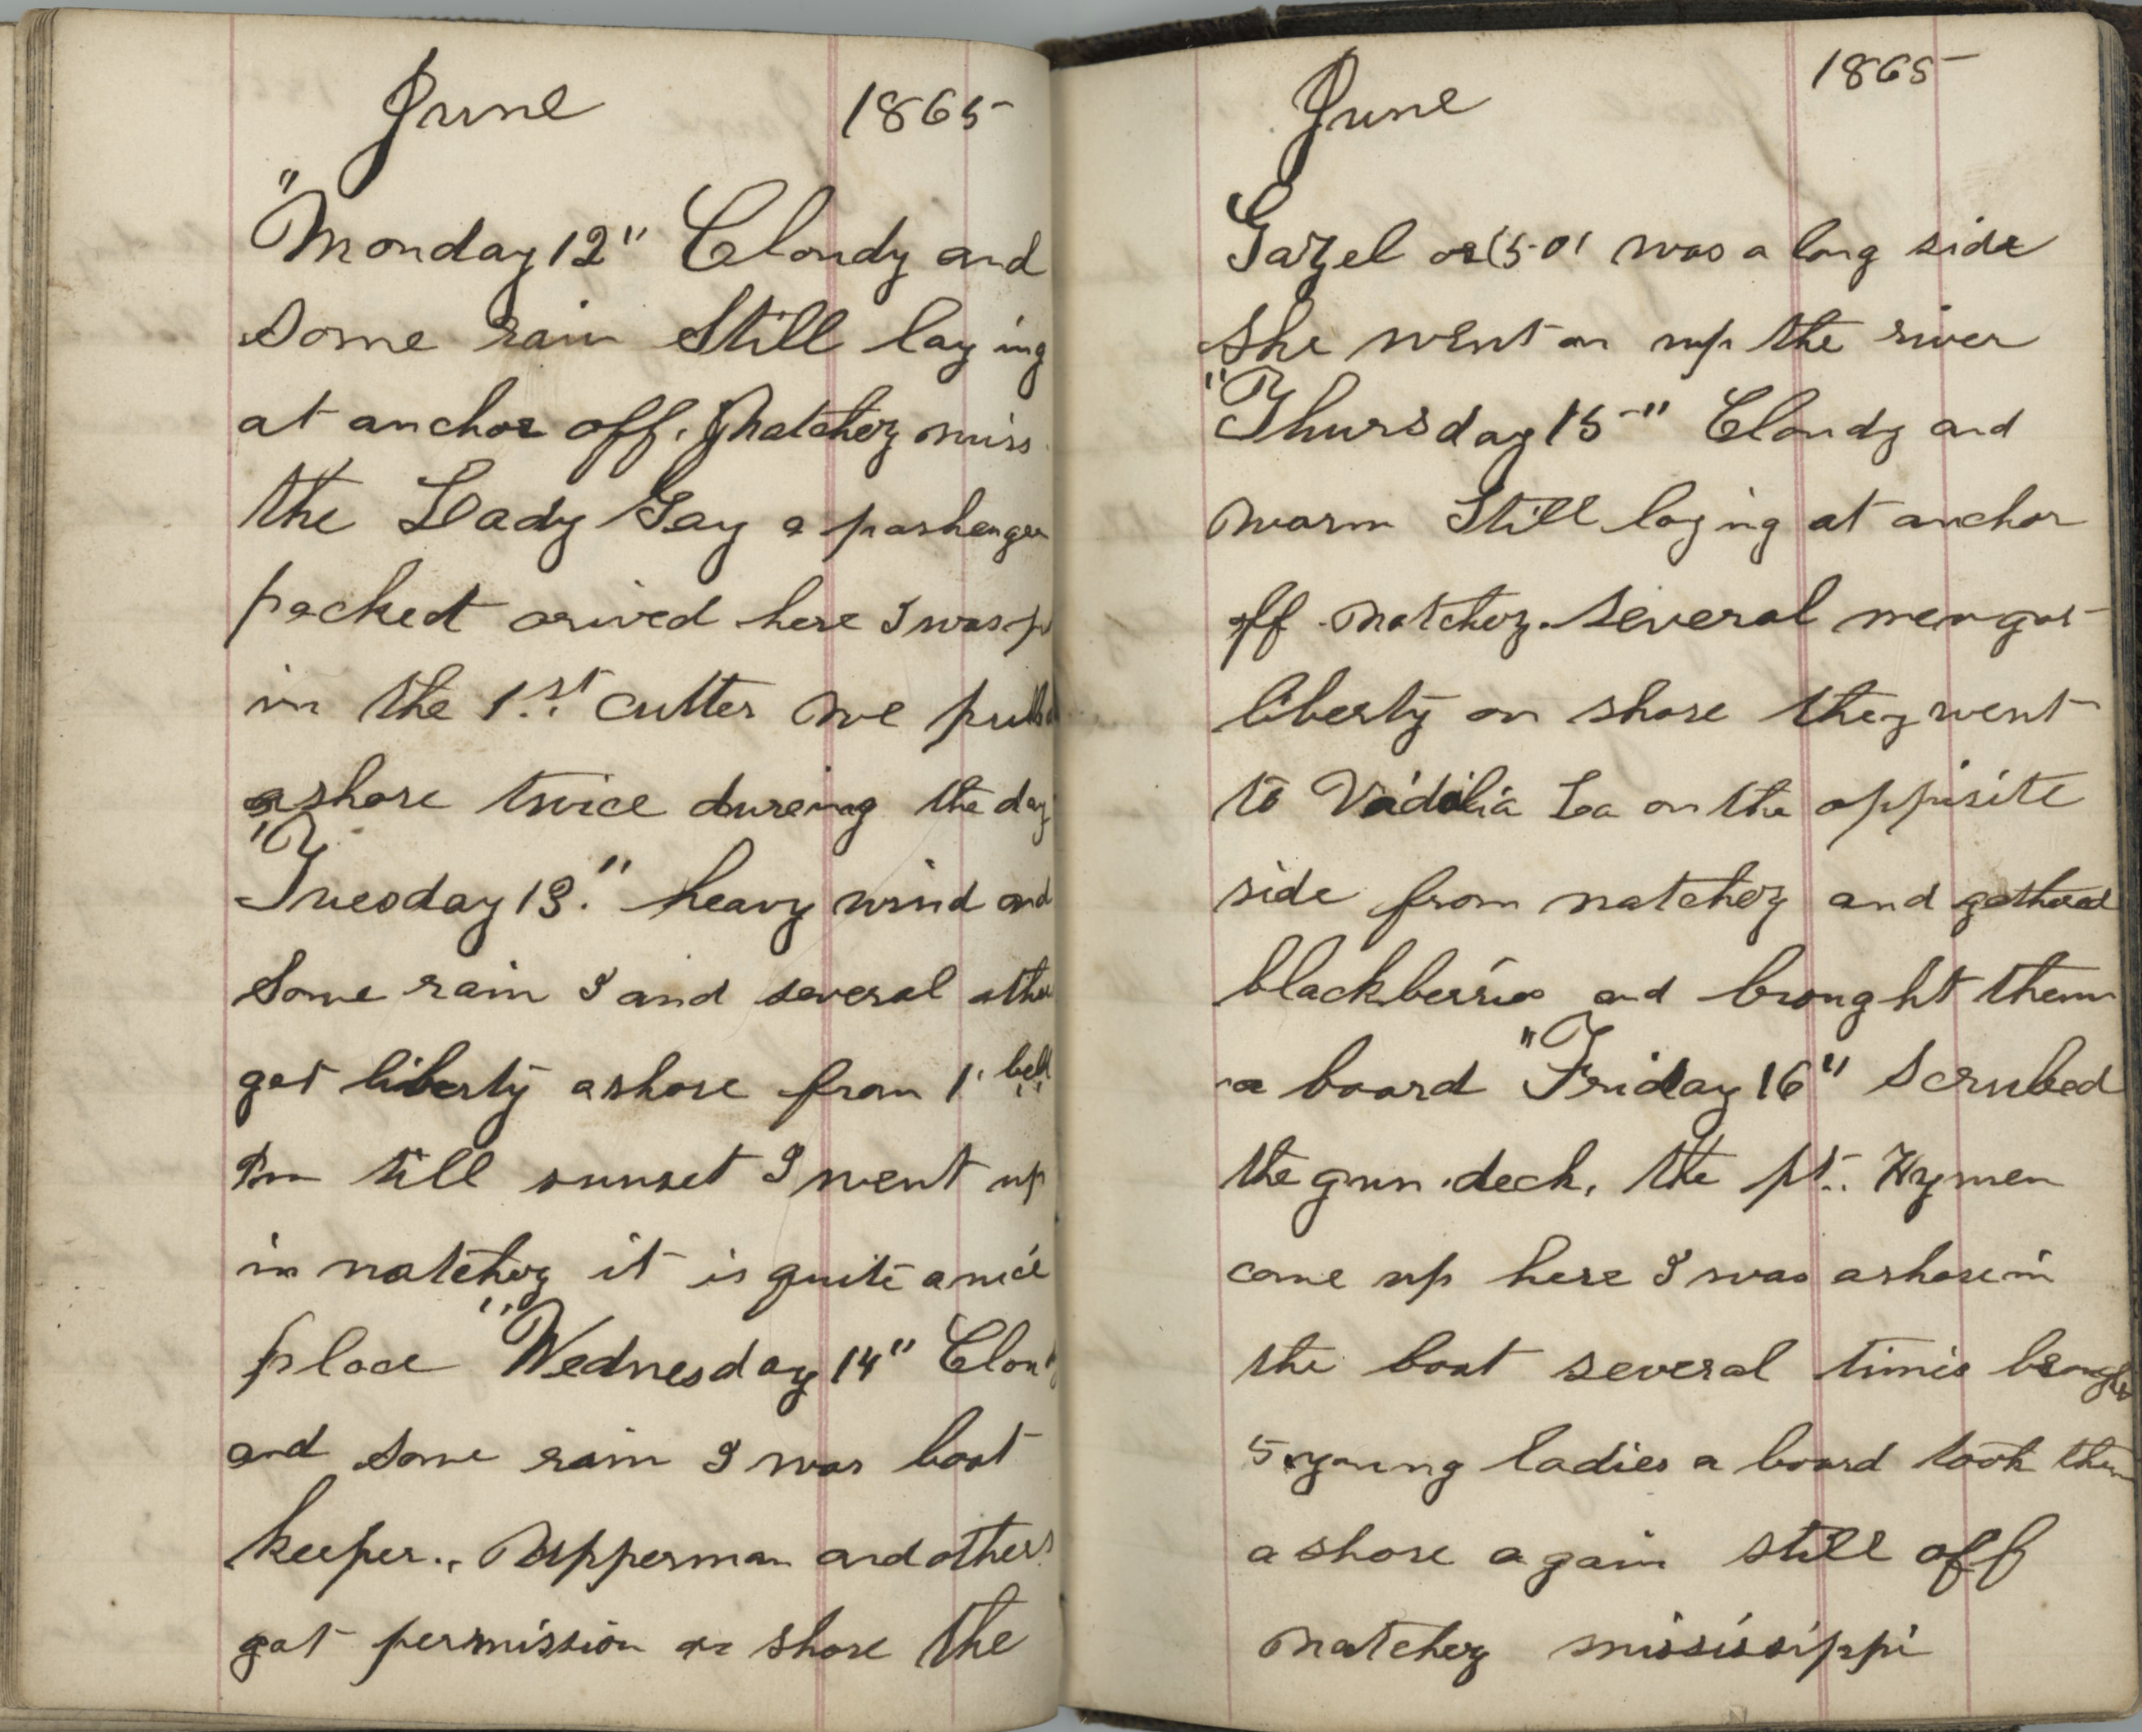 June 1865
"Monday 12" Cloudy and
some rain Still laying
at anchor off. Natchez miss
the Lady Gay a pashenger
packed arived here I was
in the 1.st cutter we pulled
ashore twice dureing the day
"Tuesday 13." heavy wind and
Some rain I and several other
got liberty ashore from 1. bell
Pm till sunset I went up
in natchez it is quite a nice
place "Wednesday 14" Cloudy
and some rain I was boat
keeper., Upperman and others
got permission on shore the
June 1865
Gazel or (50) was a long side
she went on up the river
"Thursday 15" Cloudy and
warm Still laying at anchor
off Natchez. Several men got
liberty on shore they went
to Vidalia La on the oppisite
side from natchez and gathered
blackberries and brought them
a board "Friday 16" Scrubed
the gun deck, the pt. Hymen
come up here I was ashore in
the boat several times brought
5 young ladies a board took them
a shore again still off
natchez missisippi